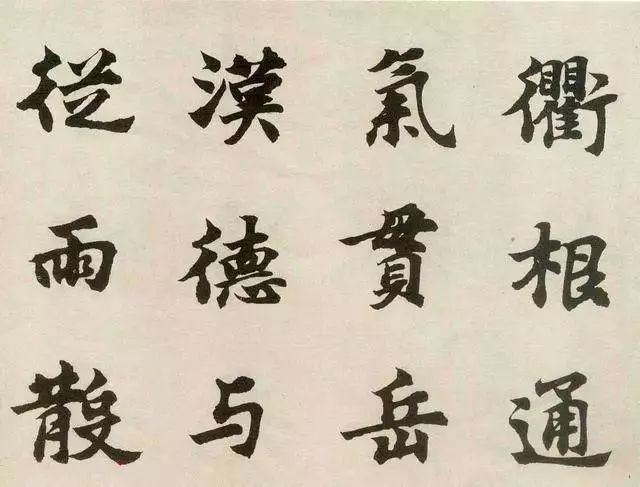 衢根通
氣貫岳
漠德与
従雨散